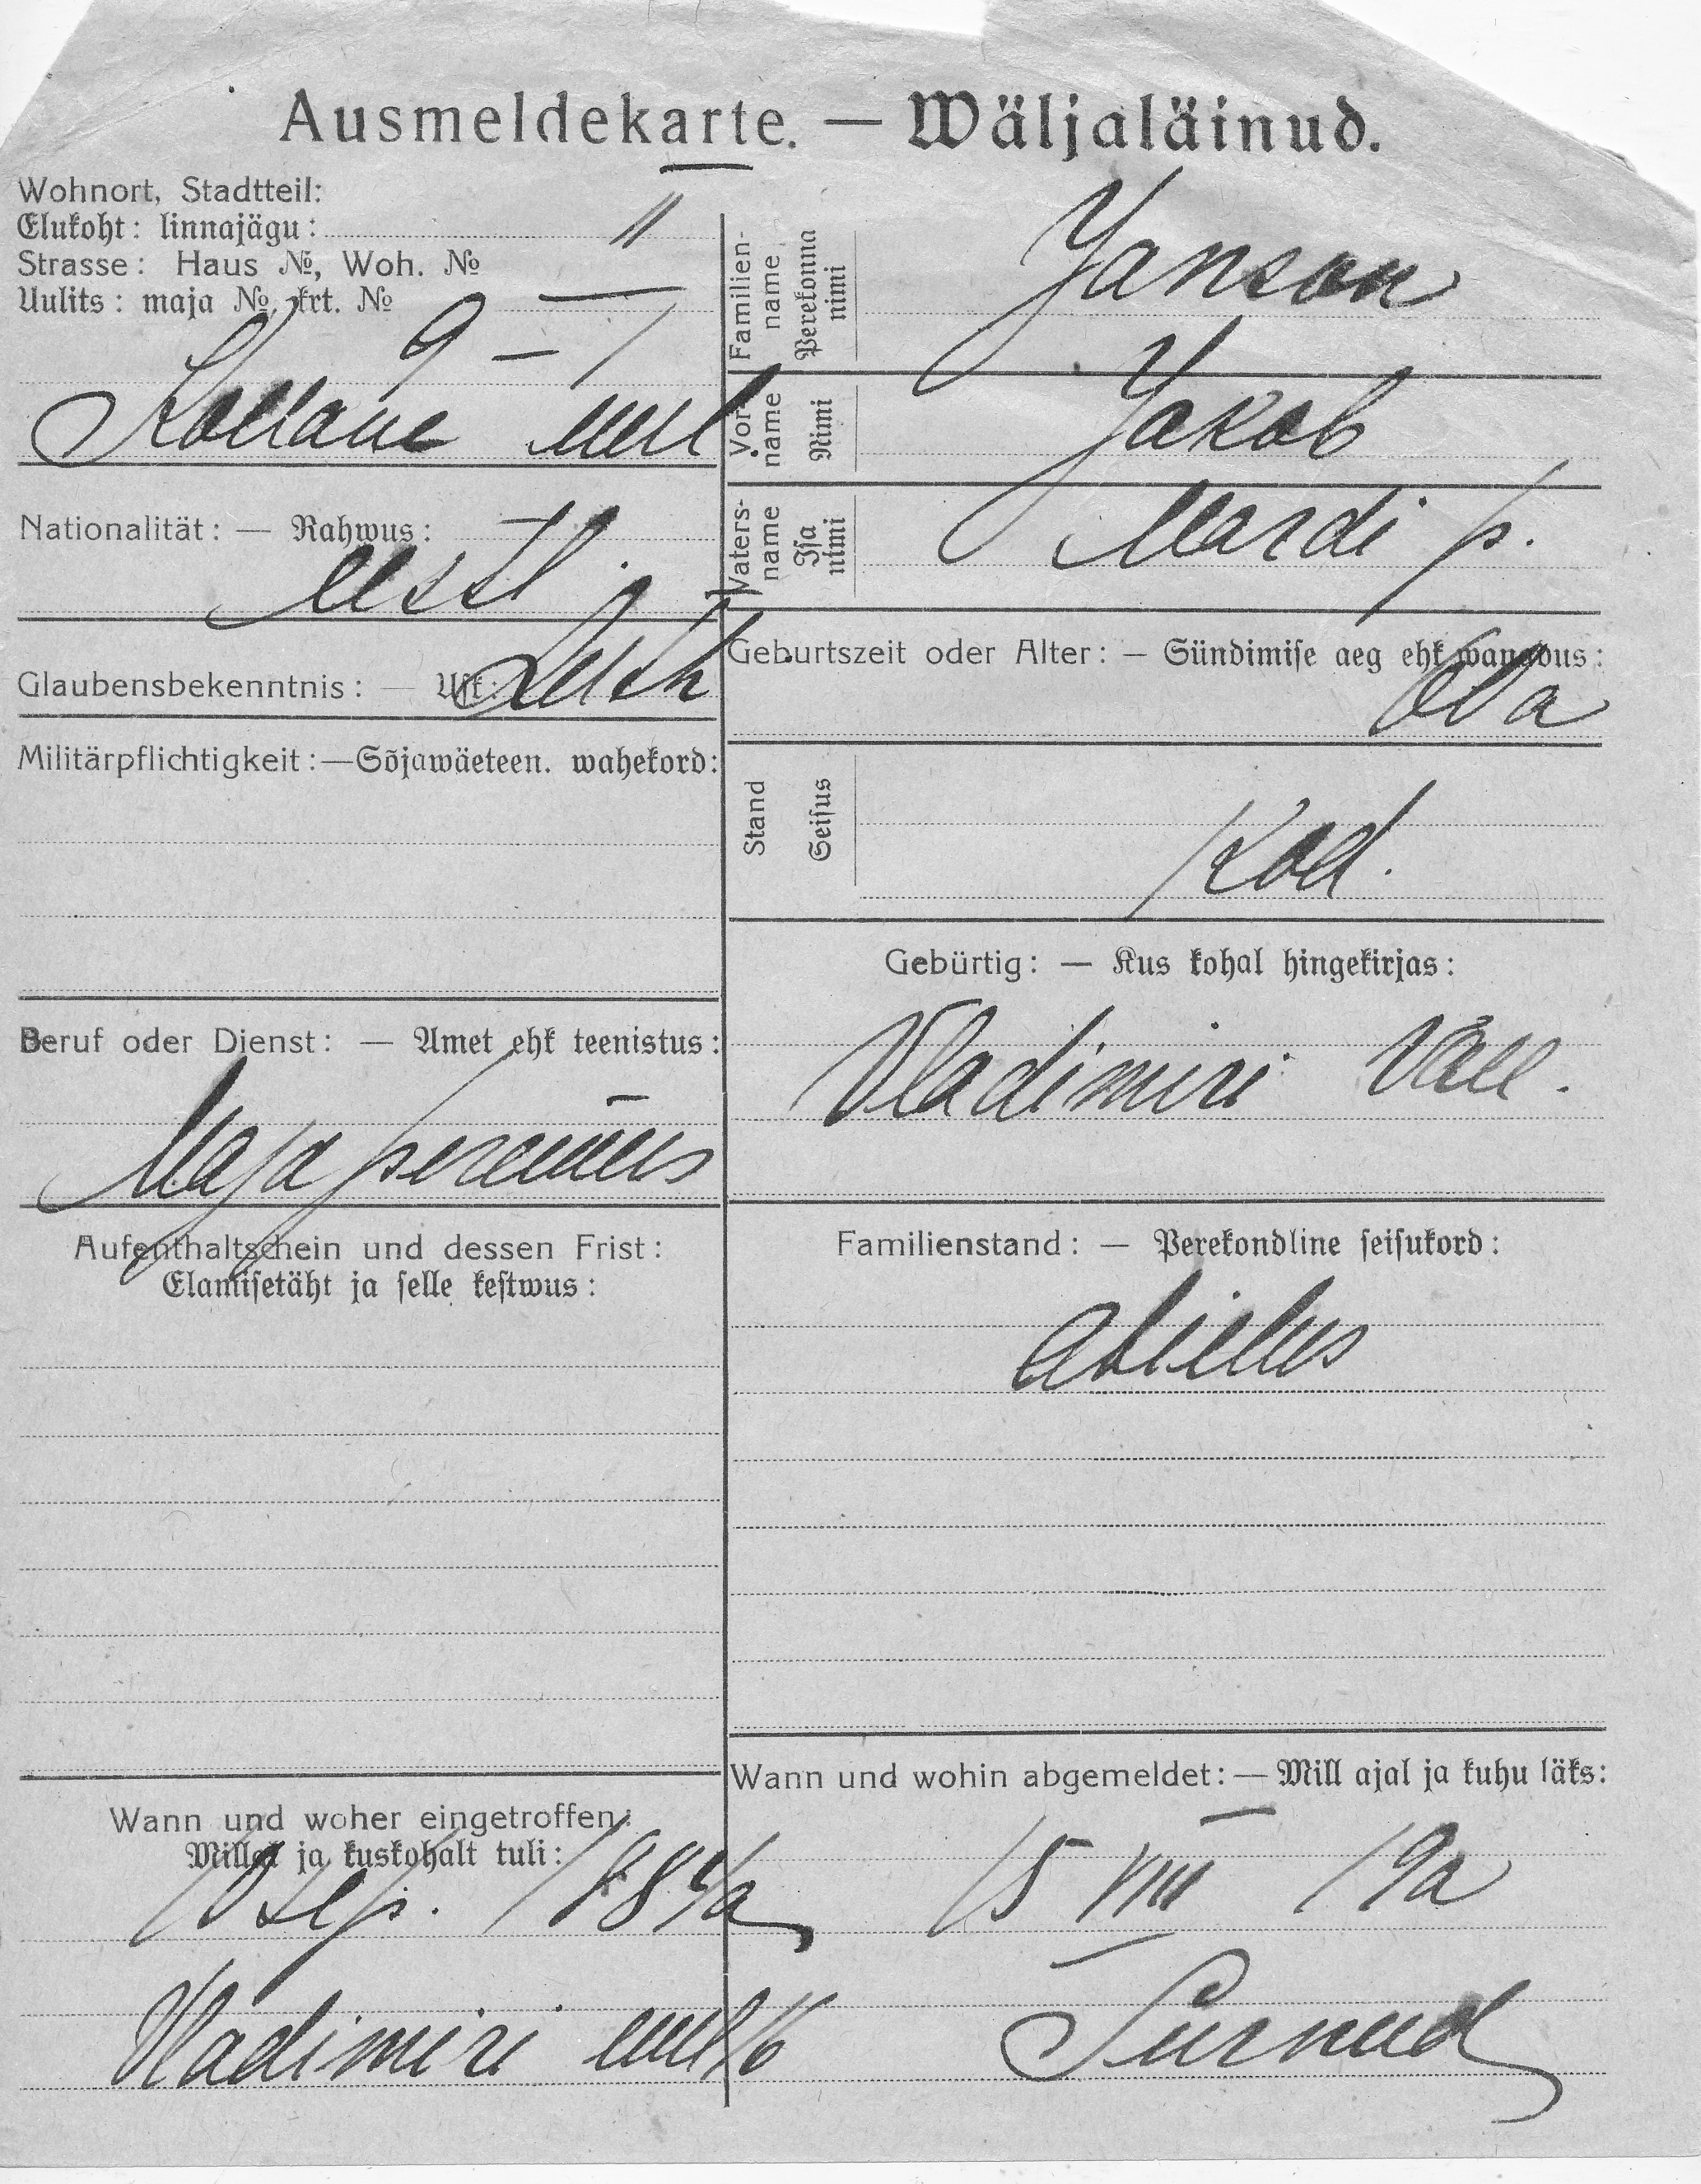 Ausmeldekarte. — Wäljaläinud.
Wohnort, Stadtteil:
Elukoht: linnajägu: II
Strasse: Haus №, Woh. №
Uulits: maja №, krt. №
9 — 1
Kollane uul
Nationalität: — Rahwus:
eestl.
Glaubensbekenntnis: — Usk: Luth
Militärpflichtigkeit: — Sõjawäeteen. wahekord:
Beruf oder Dienst: — Amet ehk teenistus:
Maja peremees
Aufenthaltschein und dessen Frist:
Elamisetäht ja selle kestwus:
Wann und woher eingetroffen:
Millal ja kuskohalt tuli:
10 Sep.
Vladimiri uul 16
Familien-name Perekonna nimi
Yanson
Vor-name Nimi
Yakob
Vaters-name Isa nimi
Mardi p.
Geburtszeit oder Alter: — Sündimise aeg ehk wanadus:
Stand Seisus
Kod.
Gebürtig: — Kus kohal hingekirjas:
Vladimiri Vall.
Familienstand: — Perekondline seisukord:
abielus
Wann und wohin abgemeldet: — Mill ajal ja kuhu läks:
15 VIII 19a
Surnud